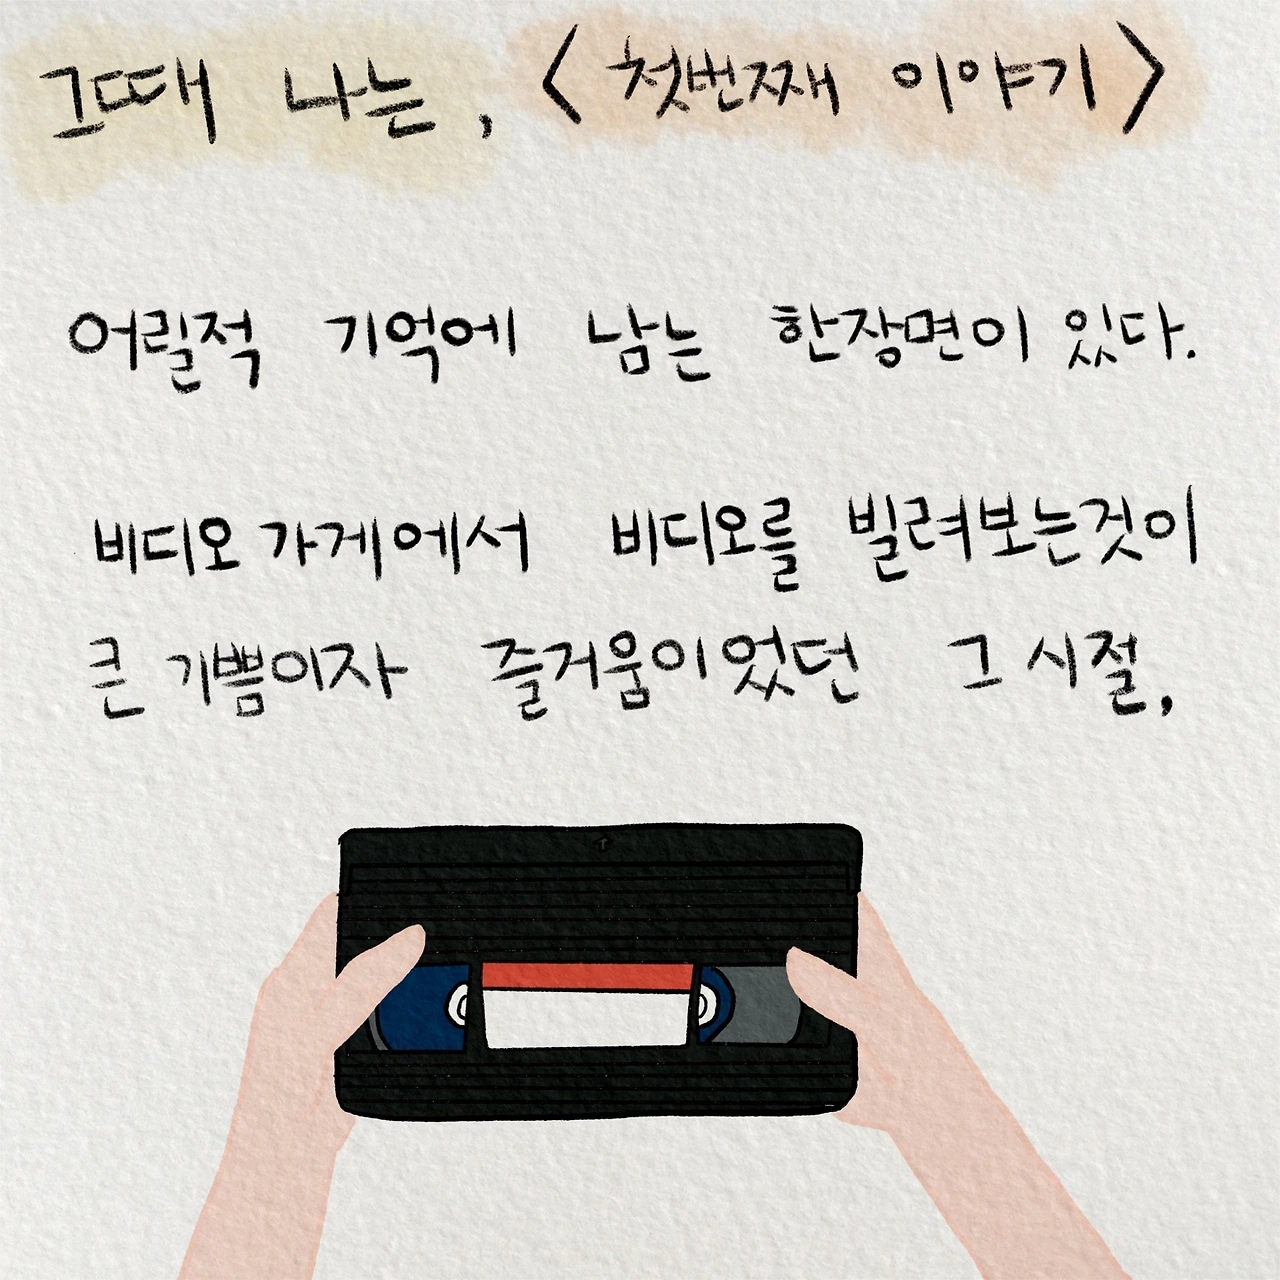 그때 나는, <첫번째 이야기>
어릴적 기억에 남는 한장면이 있다.
비디오 가게에서 비디오를 빌려보는것이
큰 기쁨이자 즐거움이었던 그 시절,